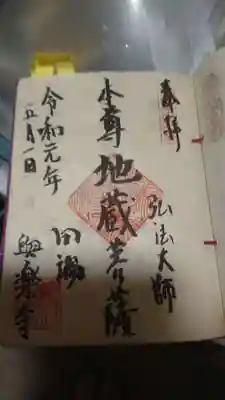 奉拝
弘法大師
本尊地蔵菩薩
田端
與楽寺
令和元年
五月一日